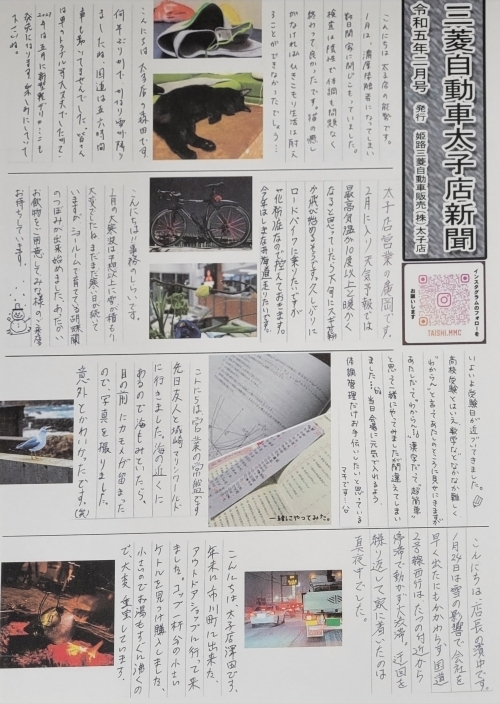 三菱自動車太子店新聞
令和五年二月号 発行 姫路三菱自動車販売(株)太子店
インスタグラムのフォローを
お願いします
TAISHI.MMC
こんにちは太子店の
1月は、濃厚接触者になってしまい
数日間家に閉じこもっていました。
検査は陰性で体調も問題なく
終わって良かったです。猫の癒し
がなければ引きこもり生活は耐え
ることができなかったでしょう…
こんにちは太子店の森田です。
ましたね、国道は五、六時間
車も動いてませんでした。皆さん
太子店営業の廣岡です。
2月に入り天気予報では
最高気温が10度以上と暖かく
なると思っていたら、今度はスギ花粉
が飛び始めるそうです。久しぶりに
ロードバイクに乗りたいですが
花粉症なので控えておきます。
今年はしまなみ海道走りたいです。
こんにちは!!事務の
1月の大寒波は予想以上に雪が積もり
大変でしたね。まだまだ寒い日が続いて
いますが、ショールームで育てている胡蝶蘭
のつぼみが出来始めました。あたたかい
お飲物をご用意してみな様のご来店
お待ちしています。
いよいよ受験日が近づいてきました。
高校受験とはいえ数学などなかなか難しく
"わからん"と言ってあたしのところに見せにきますが
あたしだって"わからん!!"漢字だって"超簡単"
と思って一緒にやってみましたが間違えてしまい
ました…。当日会場に元気で入れるよう
体調管理だけお手伝いしたいと思っている
マキです
一緒にやってみた。
こんにちは営業の宗脇です
先日友人と城崎マリンワールド
に行きました。海の近くに
あるので海もみていたら、
目の前にカモメが留まった
ので、写真を撮りました。
意外とかわいかったです。(笑)
こんにちは店長の濱中です。
1月24日は雪の影響で会社を
早く出たにもかかわらず国道
2号線西行はたつの付近から
停滞で動かず大渋滞、迂回を
繰り返して家に着いたのは
真夜中でした。
こんにちは太子店津田です。
年末に市川町に出来た、
アウトドアショップに行って来
ました。コップ一杯分の小さい
ケトルを見つけ購入しました。
小さいのでお湯もすぐに沸くの
で、大変重宝しています。